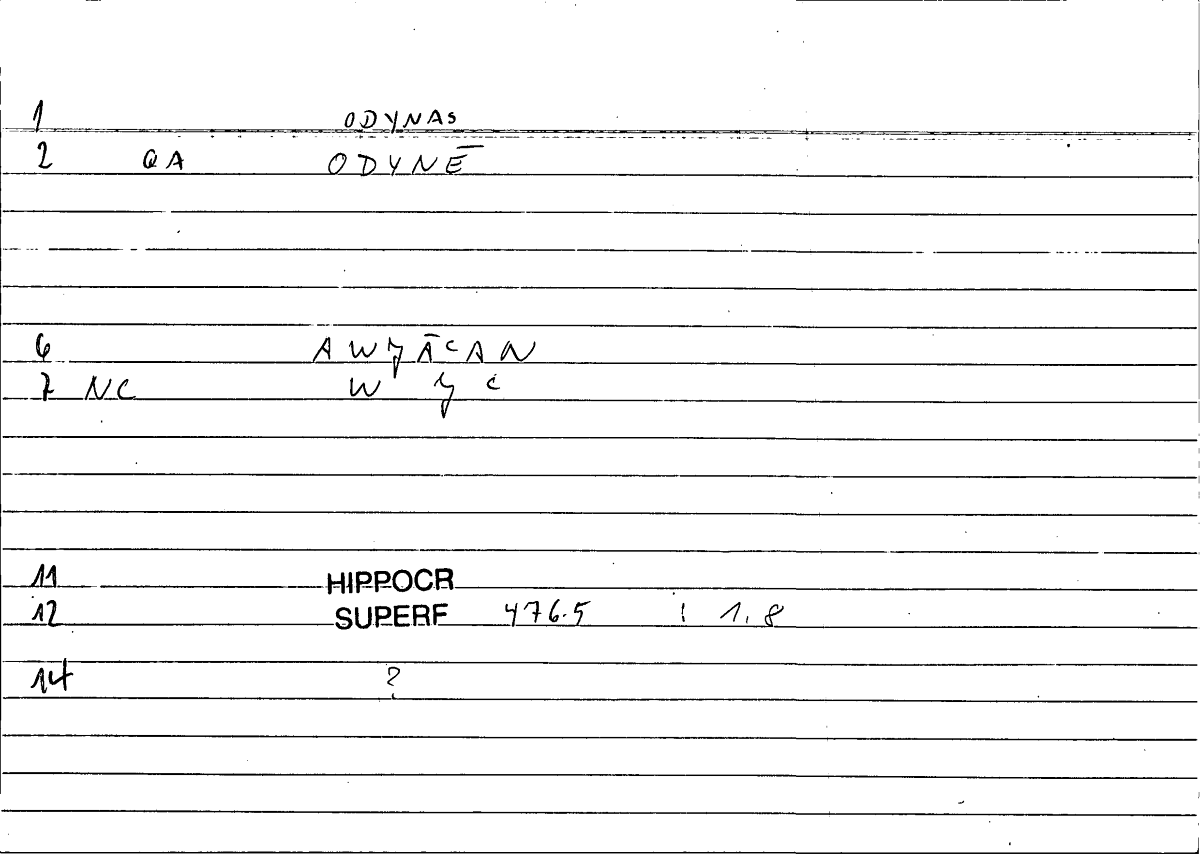 1 ODYNAS
2 QA ODYNĒ
6 AWJĀCAN
7 NC W J C
11 HIPPOCR
12 SUPERF 476.5 : 1.8
14 ?